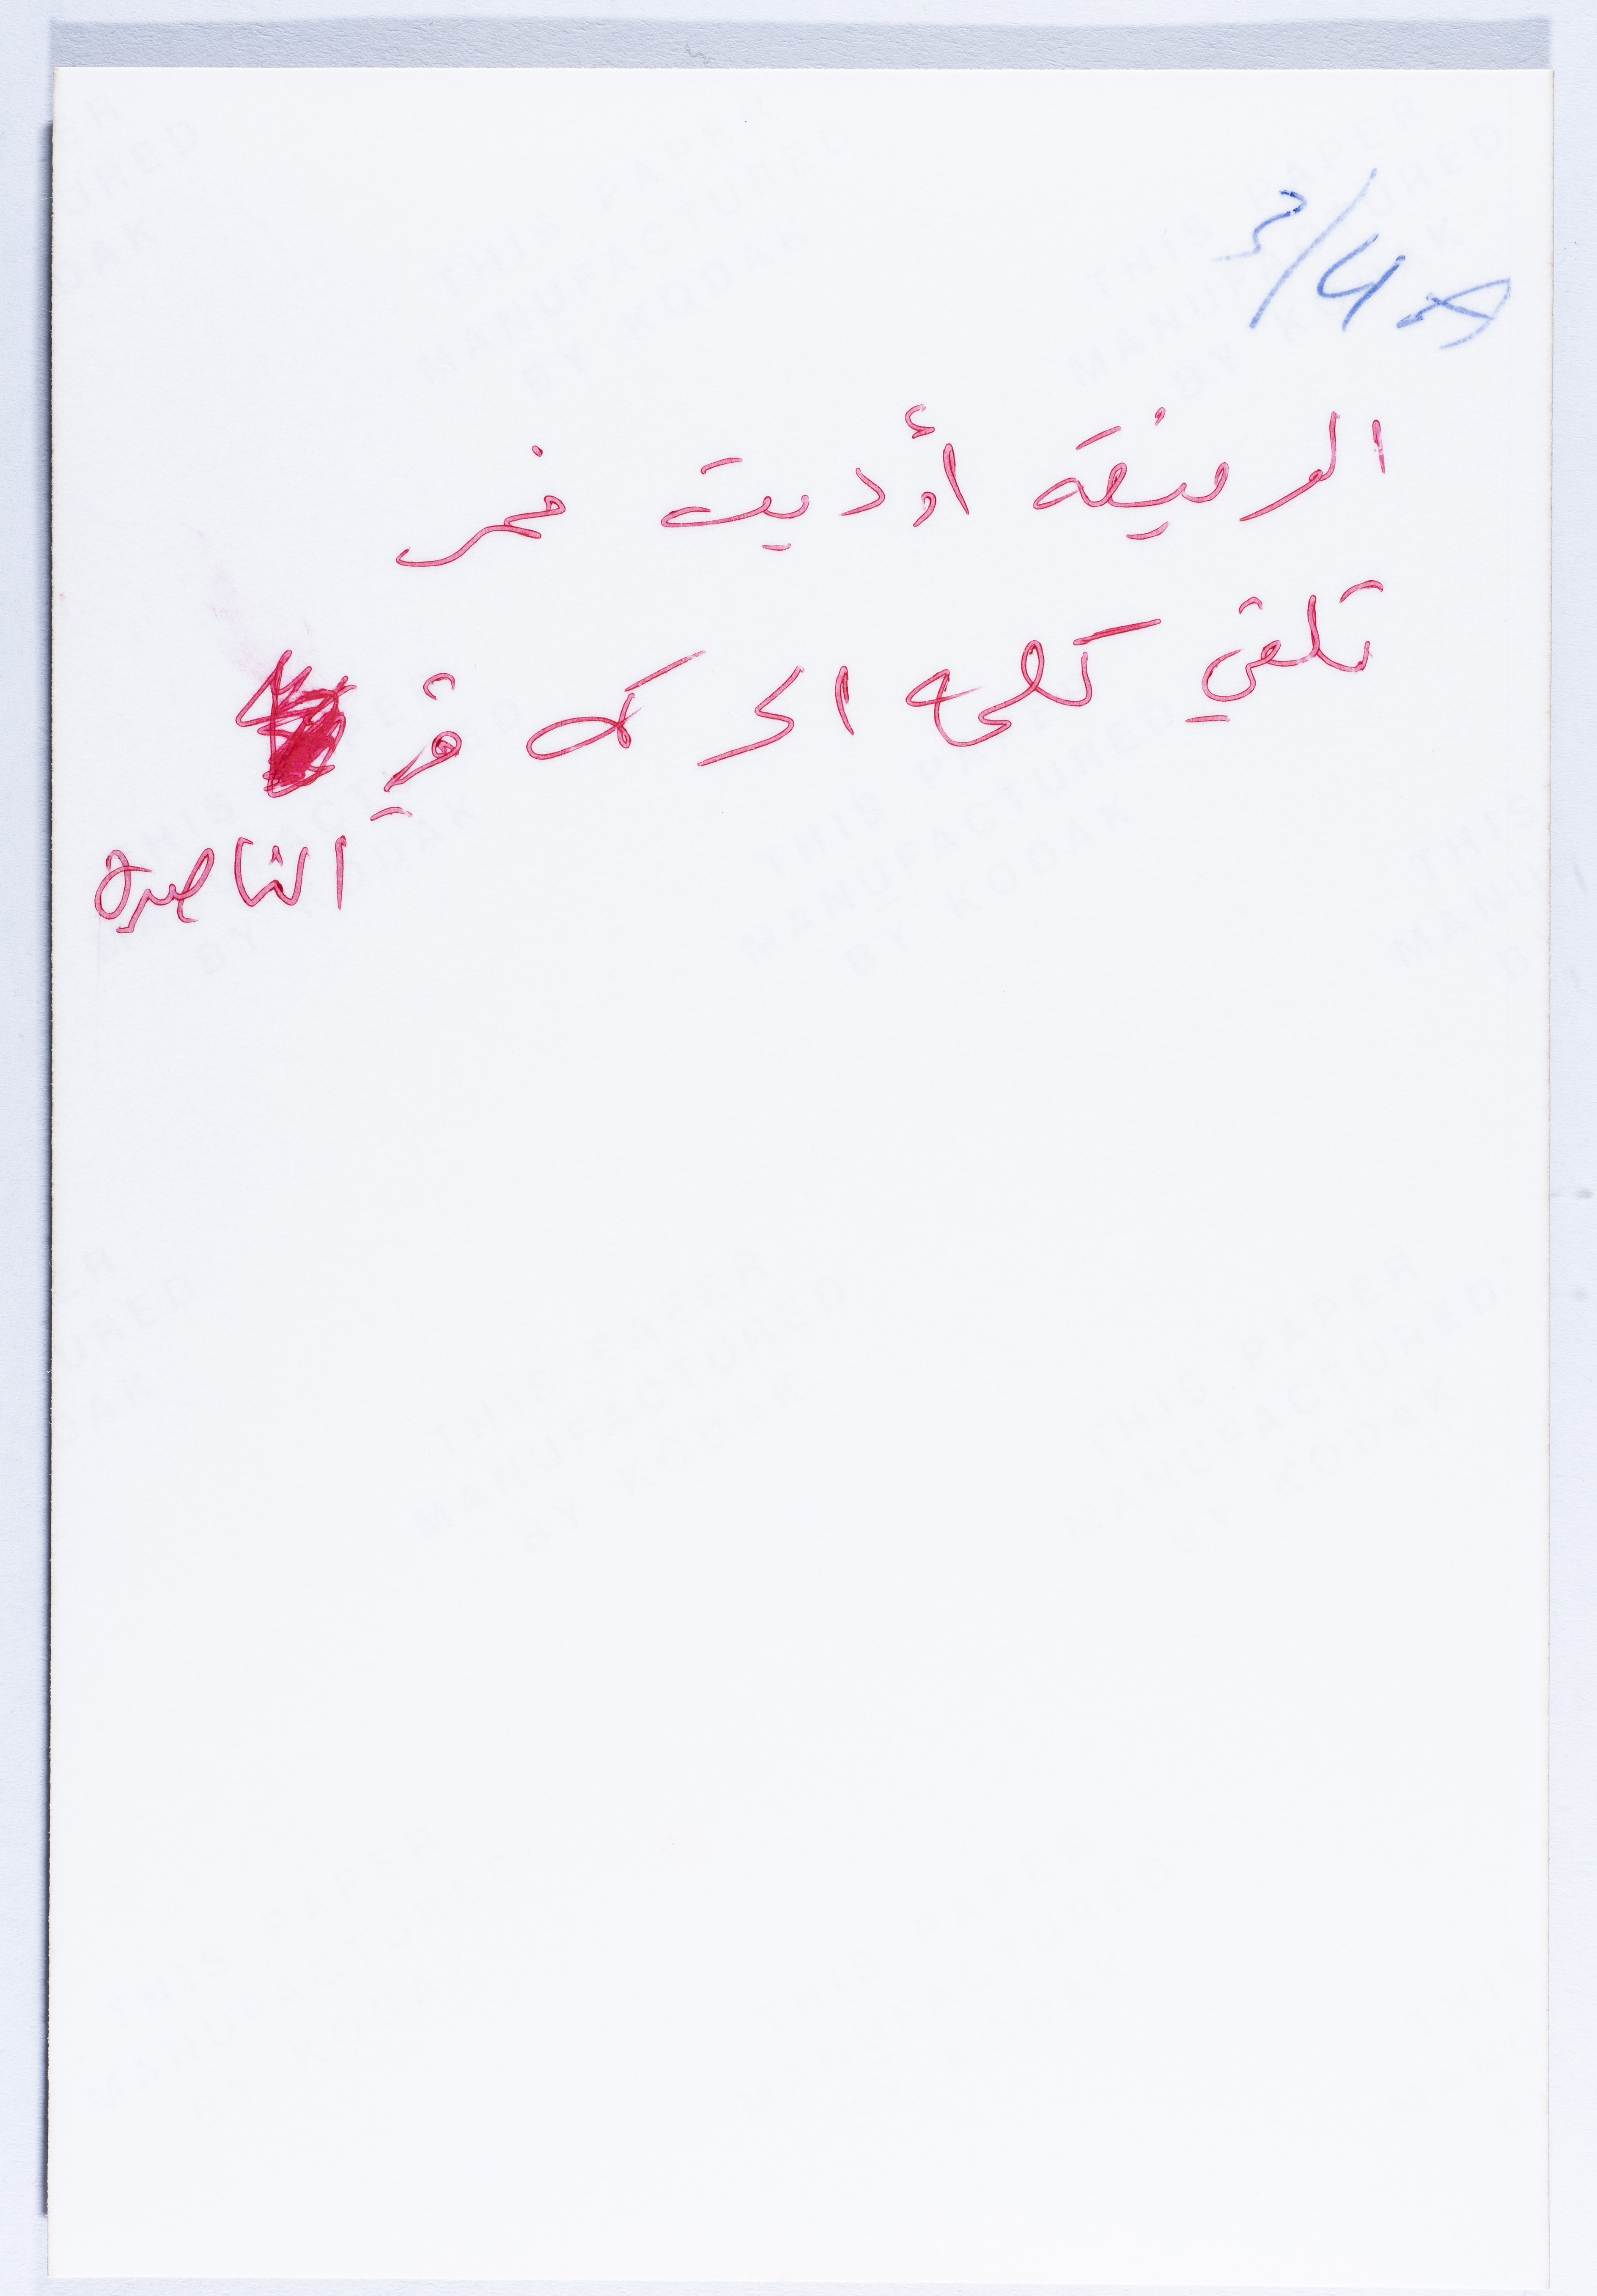 3/4 A
الرفيقة أوديت نمر
تلقي كلمة الحركة في
الناصرة
THIS PAPER
MANUFACTURED
BY KODAK